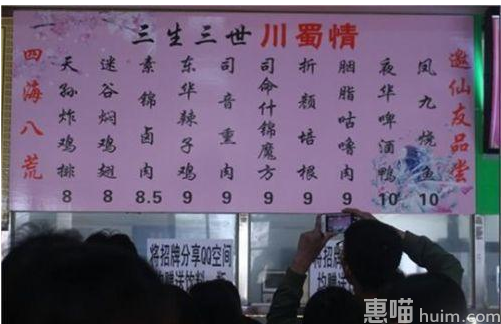 三生三世川蜀情
四海八荒
天孙炸鸡排 8
迷谷焖鸡翅 8
素锦卤肉 8.5
东华辣子鸡 9
司音重肉 9
司命什锦魔方 9
折颜培根 9
胭脂咕噜肉 9
夜华啤酒鸭 10
凤九烧鱼 10
邀仙友品尝
将招牌分享QQ空间
均赠送饮料一瓶
将招牌
惠喵huim.com